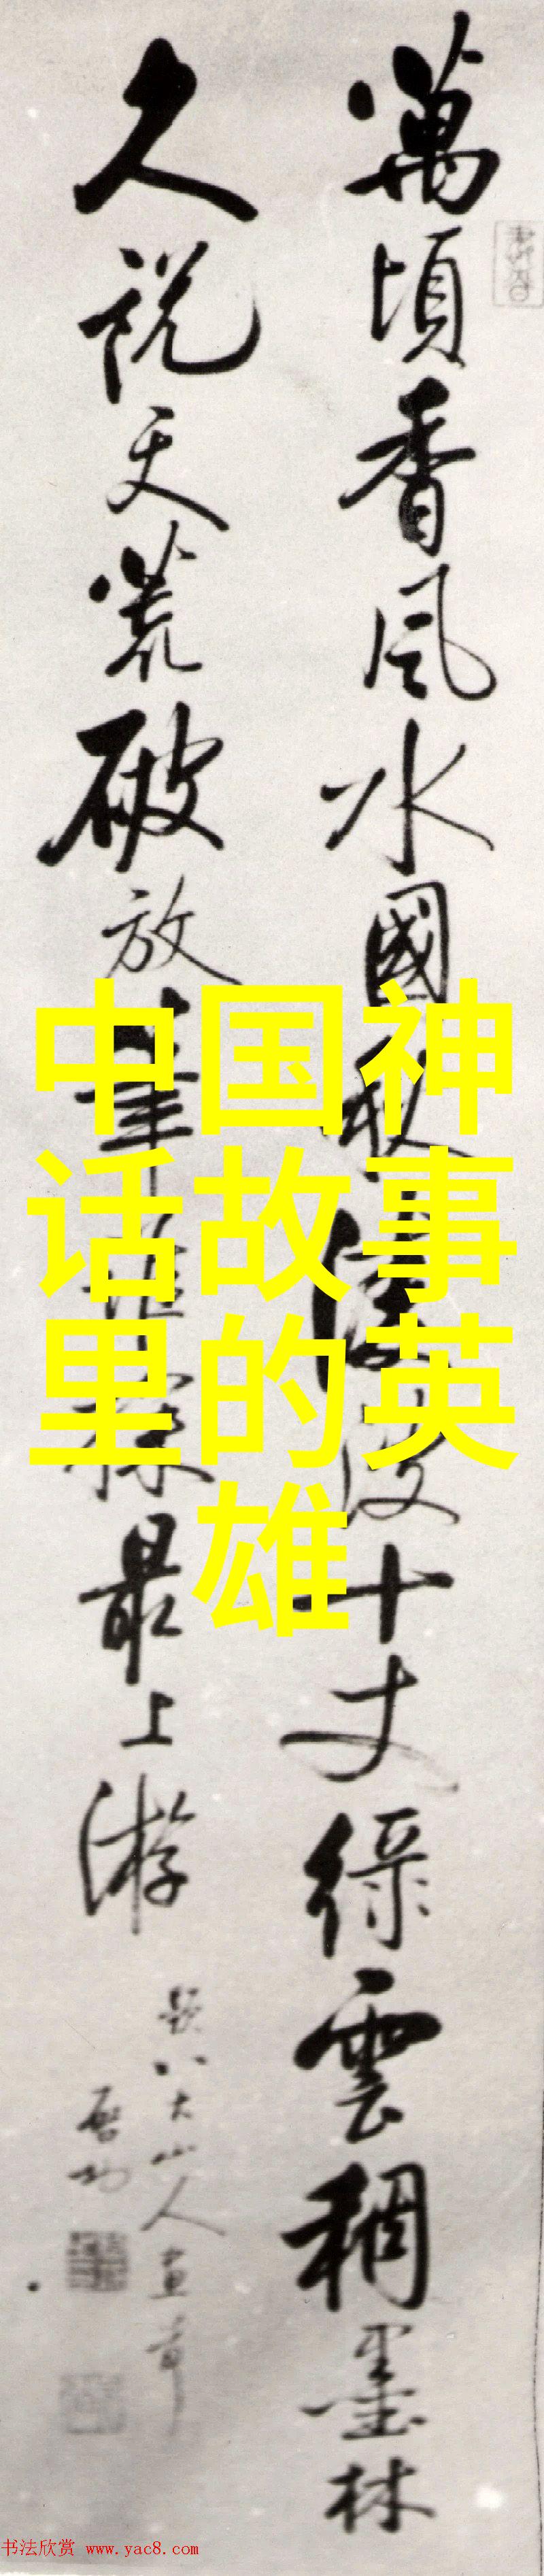 萬頃香風水國秋
十丈綠雲稠墨林
久說天荒破放筆
最上游
題八大山人畫荷
啓功
中国神
话故事
里的英
雄
书法欣赏 www.yac8.com